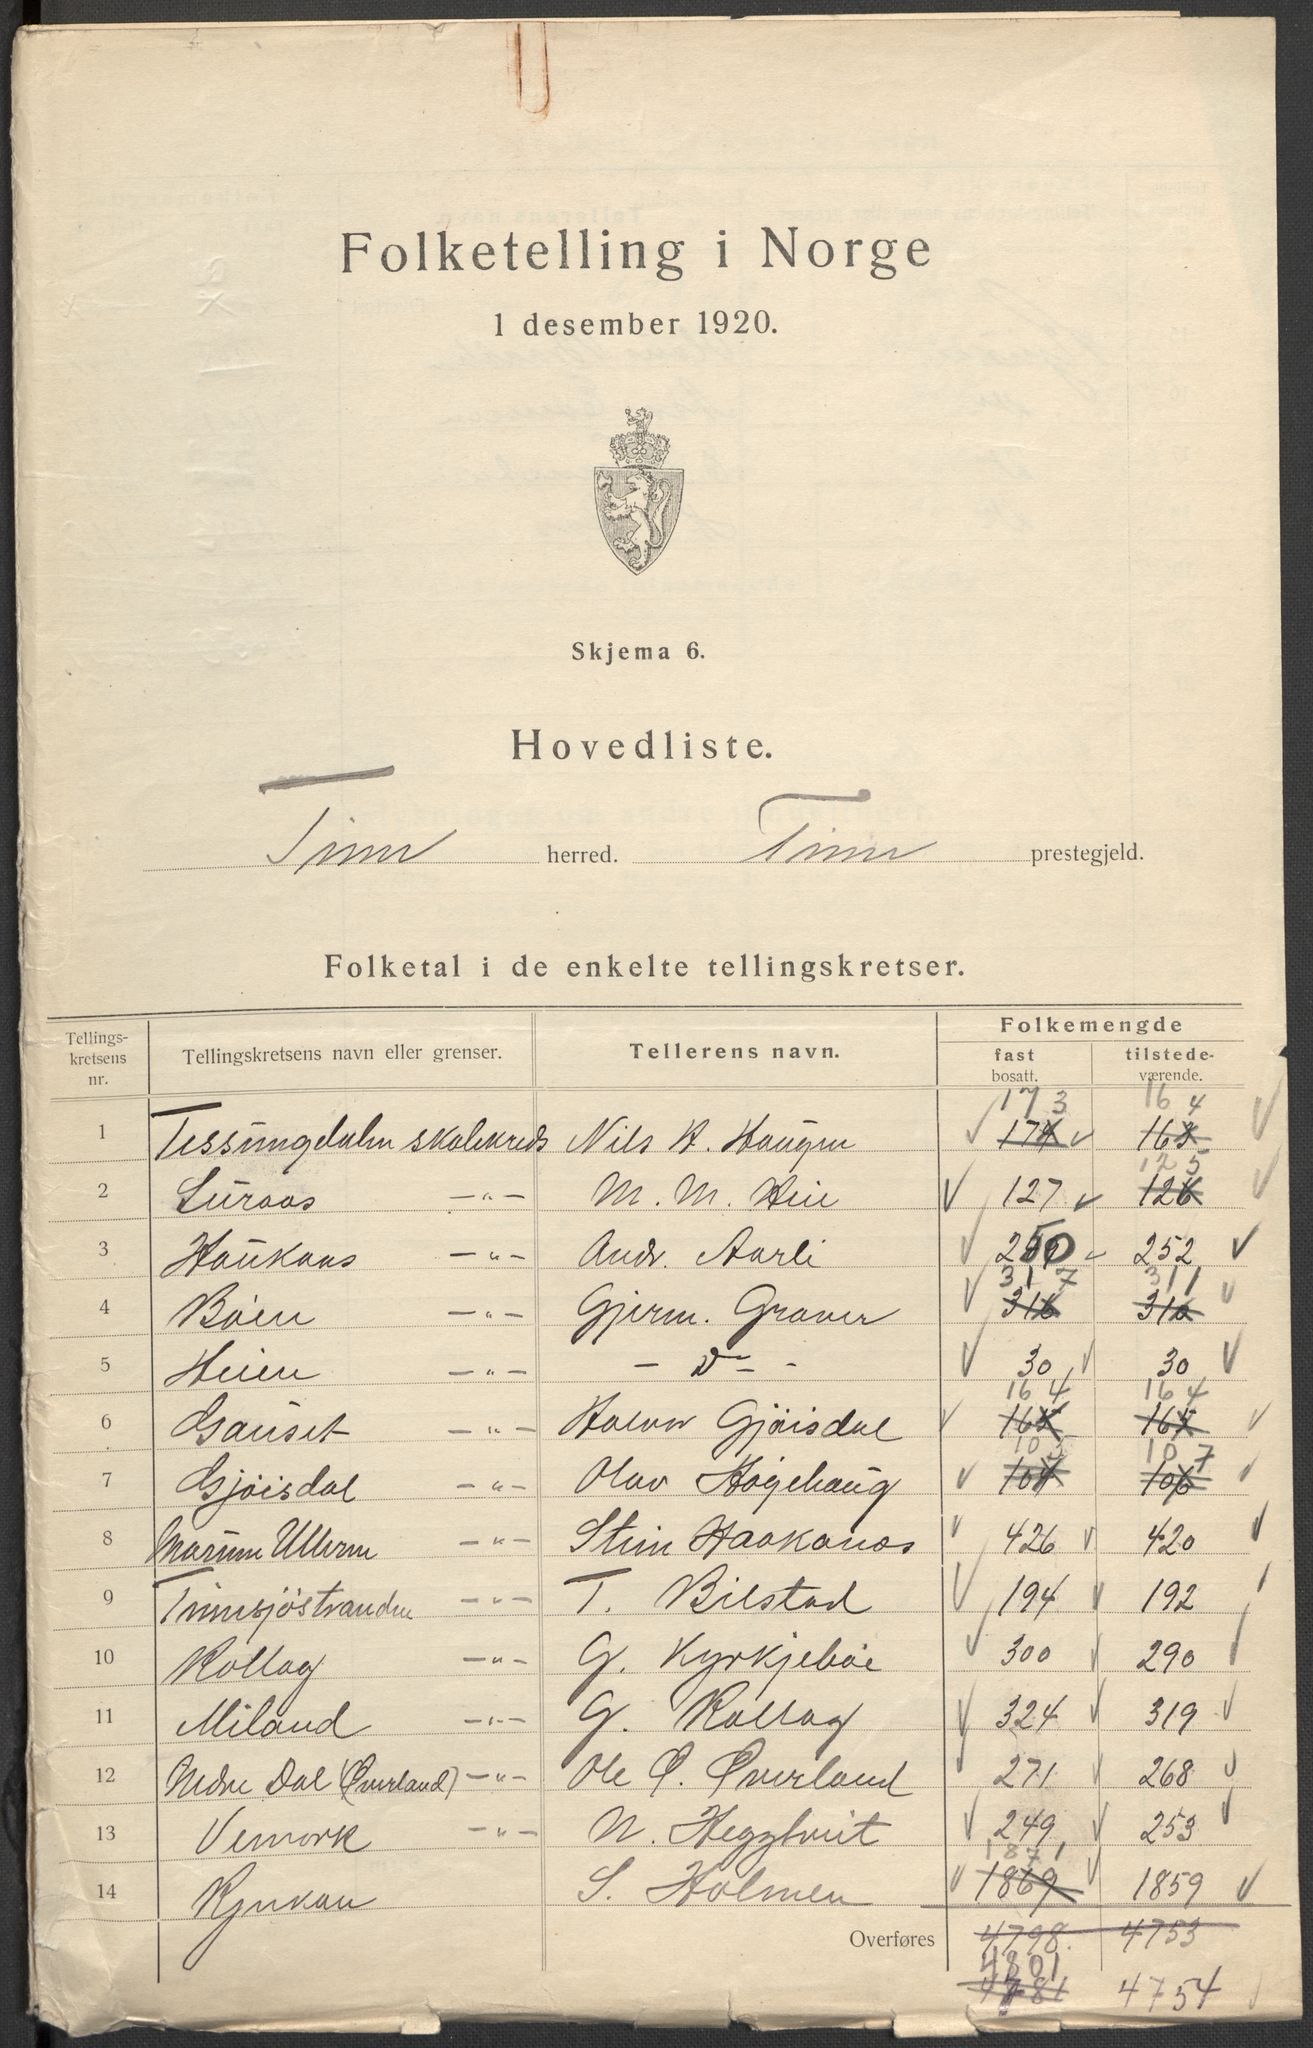 Folketelling i Norge
1 desember 1920.
Skjema 6.
Hovedliste.
Tinn herred. Tinn prestegjeld.
Folketal i de enkelte tellingskretser.
Tellings-kretsens nr. Tellingskretsens navn eller grenser. Tellerens navn. Folkemengde
fast bosatt. tilstede-værende.
173 164
1 Tessungdalen skolekreds Nils A. Haugen 174 163
125
2 Luraas —„— M. M. Heie 127 126
3 Haukaas —„— Andr. Aarli 250 252
317 311
4 Böen —„— Gjerm. Graver 316 310
5 Heien —„— — D — - 30 30
164 164
6 Gauset —„— Halvor Gjöisdal 165 165
107
7 Gjöisdal —„— Olav Högehaug 104 106
8 Marum Ullern —„— Stein Haakanes 426 420
9 Tinnsjöstranden —„— T. Bilstad 194 192
10 Rollag —„— G. Kyrkjeböe 300 290
11 Miland —„— G. Rollag 324 319
12 Nedre Dal (Øverland) —„— Ole Ø. Øverland 271 268
13 Vemork —„— N. Heggtveit 249 253
1871
14 Rjukan S. Holmen 1869 1859
Overføres 4798. 4753
4801
4781 4754